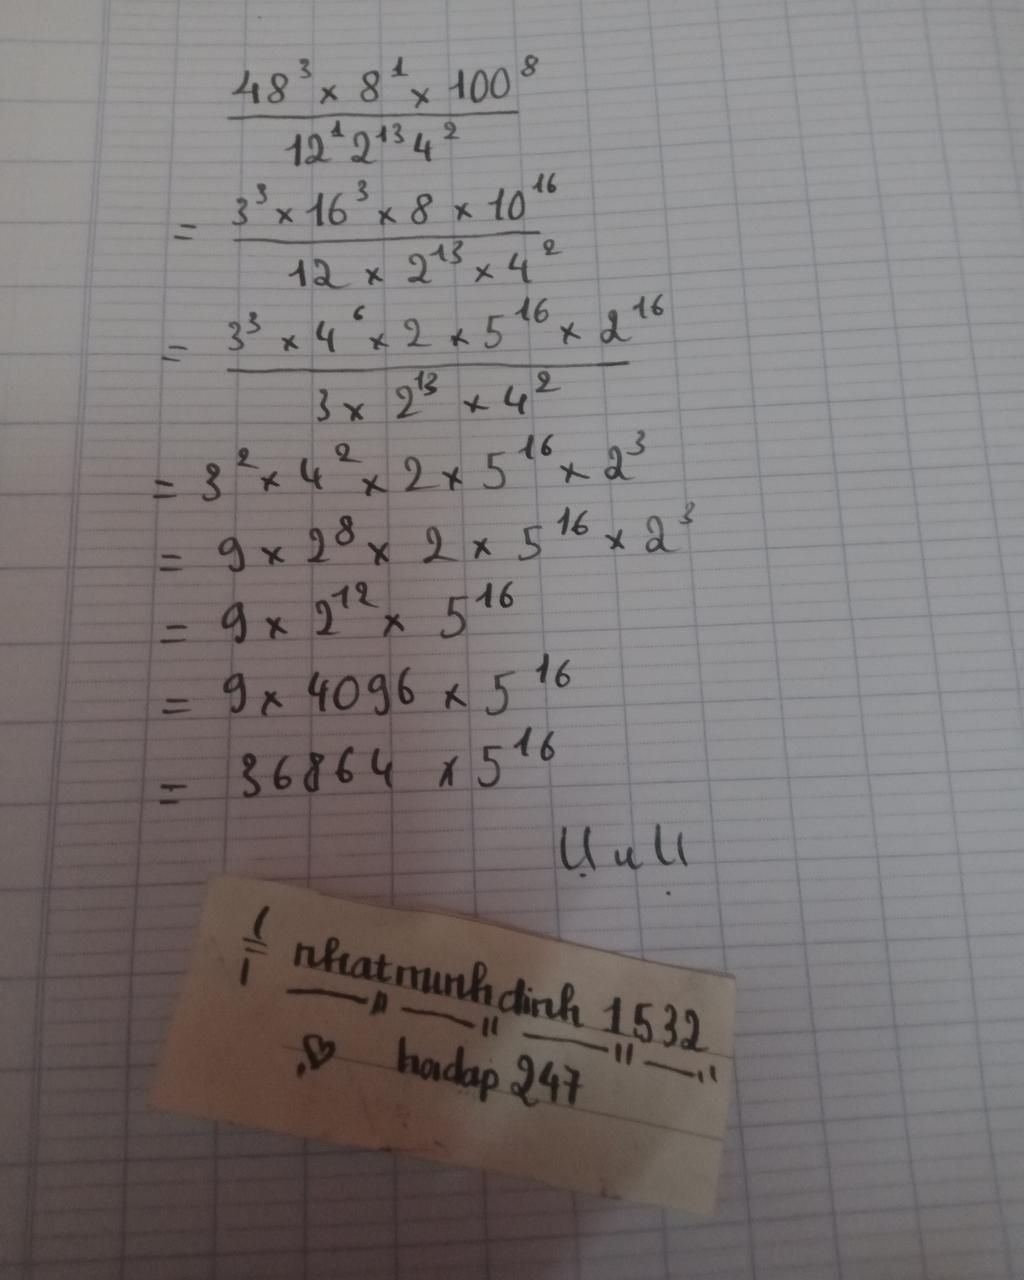 48³ × 8¹ × 100⁸
12¹ 2¹³ 4²
= 3³ × 16³ × 8 × 10¹⁶
12 × 2¹³ × 4²
= 3³ × 4⁶ × 2 × 5¹⁶ × 2¹⁶
3 × 2¹³ × 4²
= 3² × 4² × 2 × 5¹⁶ × 2³
= 9 × 2⁸ × 2 × 5¹⁶ × 2³
= 9 × 2¹² × 5¹⁶
= 9 × 4096 × 5¹⁶
= 36864 × 5¹⁶
UuU
nhatminhdinh 1532
hoidap247